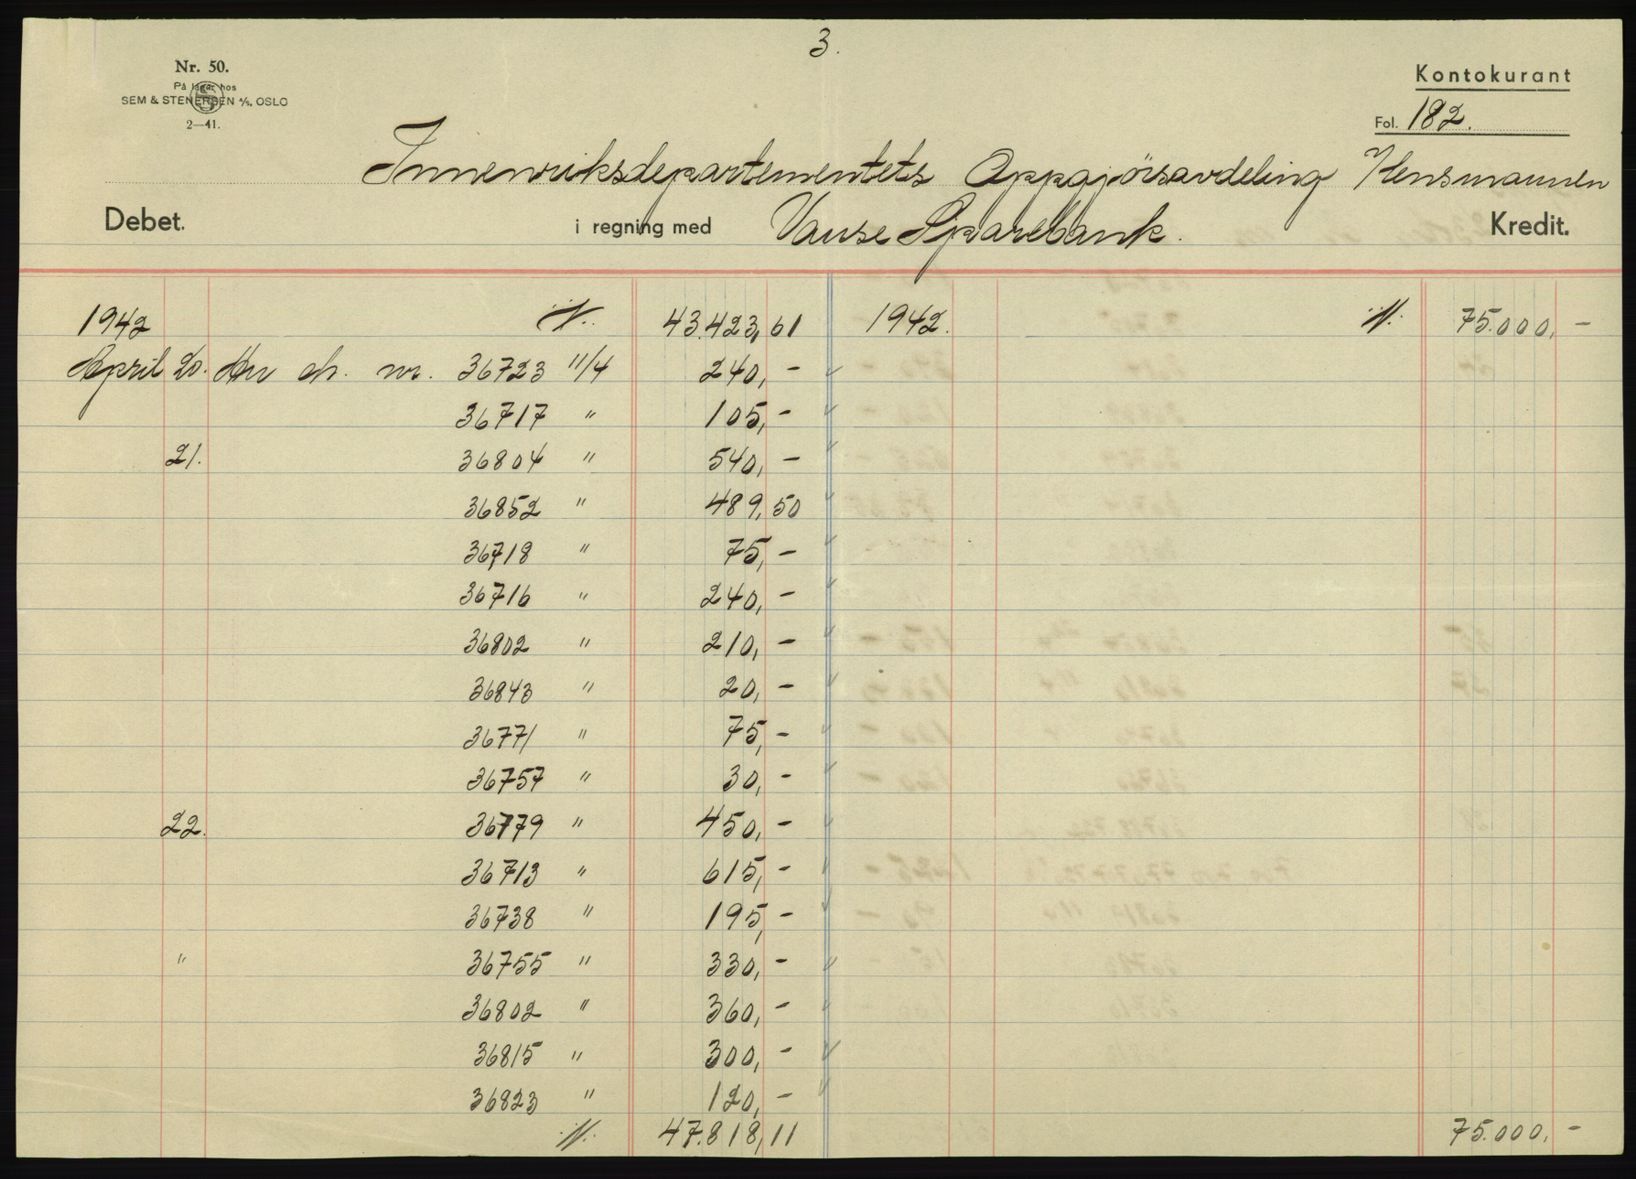 3.
Nr. 50.
På lager hos
SEM & STENERSEN A/S, OSLO
2—41.
Kontokurant
Fol. 182.
Innenriksdepartementets Oppgjörsavdeling
Debet. i regning med Vanse Sparebank. Kredit.
1942 43.423,61 1942. 75.000,-
April 20. nr. 36723 11/4 240,-
36717 " 105,-
21. 36804 " 540,-
36852 " 489,50
36718 " 75,-
36716 " 240,-
36802 " 210,-
36843 " 20,-
36771 " 75,-
36757 " 30,-
22. 36779 " 450,-
36713 " 615,-
36738 " 195,-
" 36755 " 330,-
36802 " 360,-
36815 " 300,-
36823 " 120,-
47.818,11 75.000,-